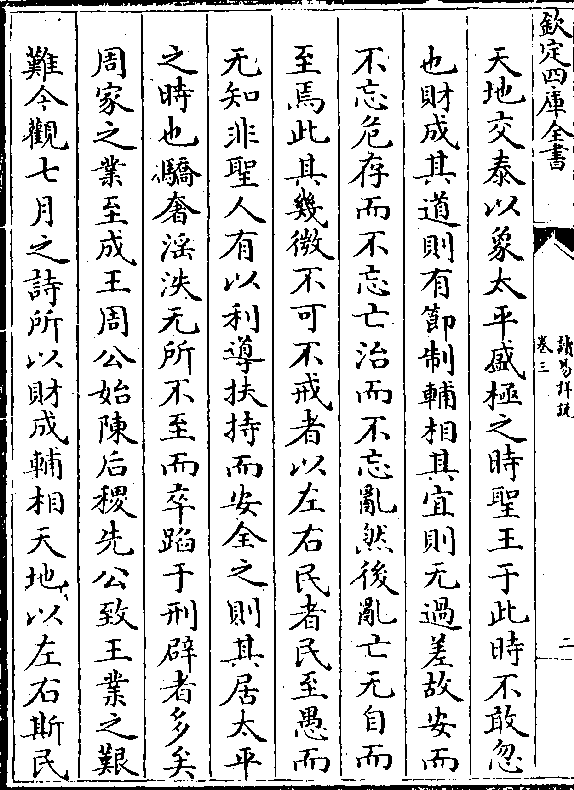 欽定四庫全書
讀易詳說
卷三
二
天地交泰以象太平盛極之時聖王于此時不敢忽
也財成其道則有節制輔相其宜則无過差故安而
不忘危存而不忘亡治而不忘亂然後亂亡无自而
至焉此其幾微不可不戒者以左右民者民至愚而
无知非聖人有以利導扶持而安全之則其居太平
之時也驕奢淫泆无所不至而卒蹈于刑辟者多矣
周家之業至成王周公始陳后稷先公致王業之艱
難今觀七月之詩所以財成輔相天地以左右斯民